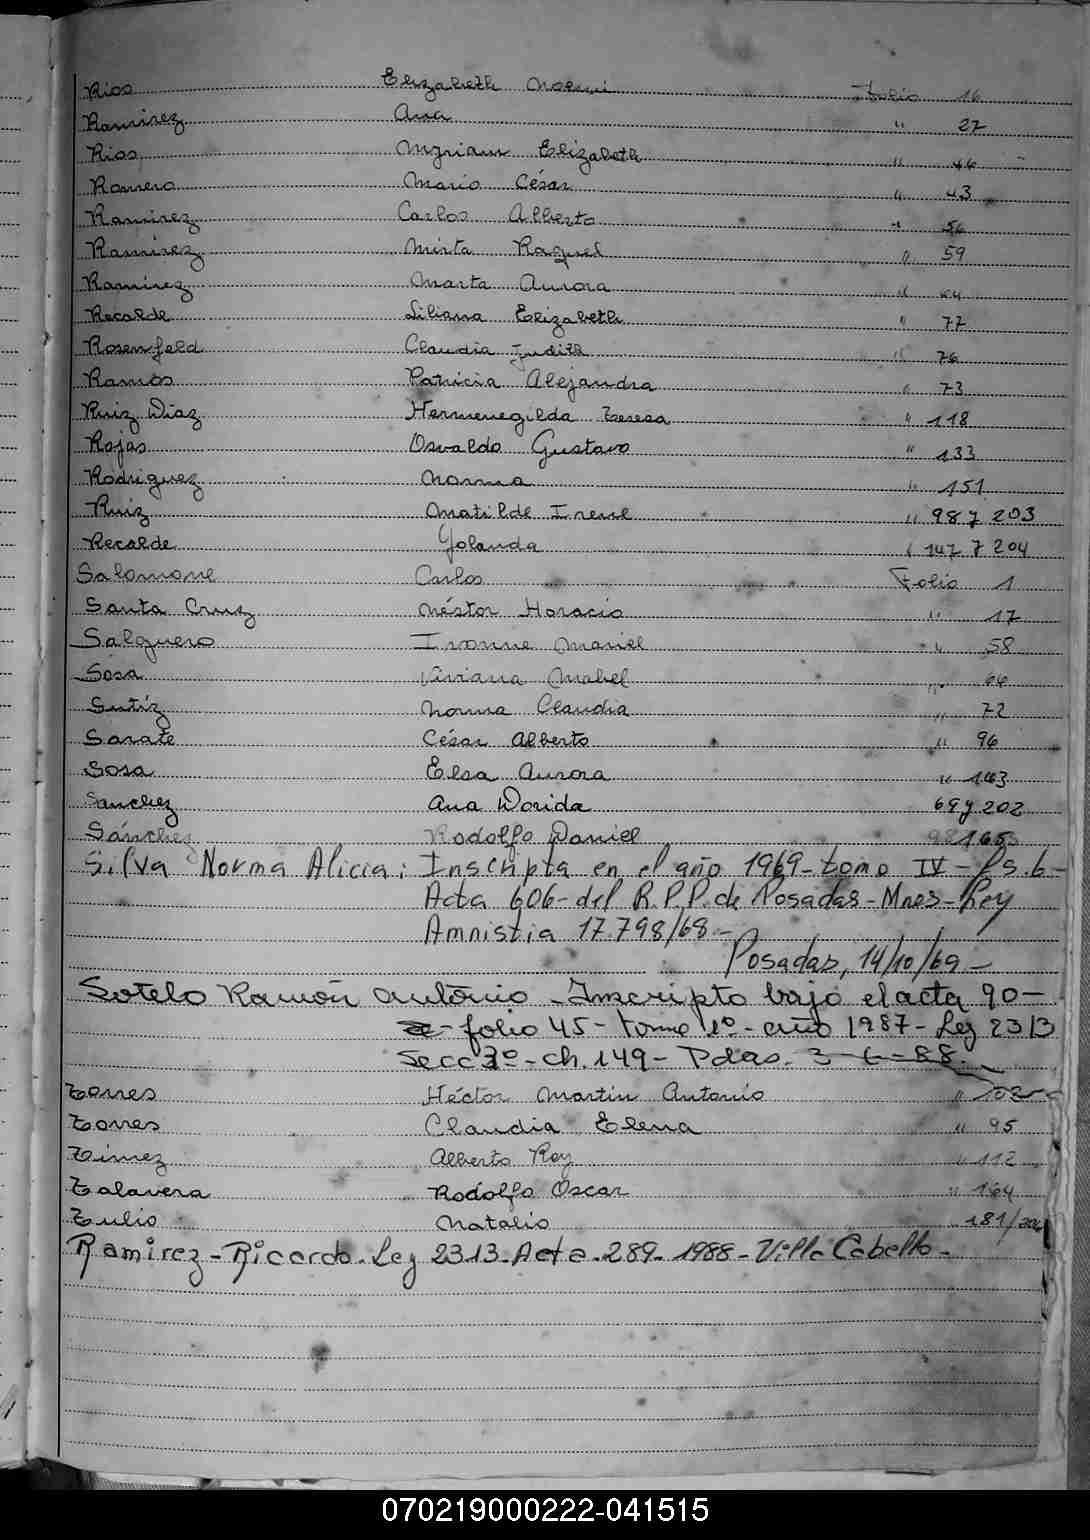 Rios Elizabeth Noemi Folio 16
Ramirez Ana " 27
Rios Myriam Elizabeth " 46
Romero Mario César " 43
Ramirez Carlos Alberto " 56
Ramirez Mirta Raquel " 59
Ramirez Marta Aurora " 64
Recalde Liliana Elizabeth " 77
Rosenfeld Claudia Judith " 76
Ramos Patricia Alejandra " 73
Ruiz Diaz Hermenegilda Teresa " 118
Rojas Osvaldo Gustavo " 133
Rodriguez Norma " 151
Ruiz Matilde Irene " 98 y 203
Recalde Yolanda " 147 y 204
Salomone Carlos Folio 1
Santa Cruz Néstor Horacio " 17
Salguero Ivonne Mariel " 58
Sosa Viviana Mabel " 66
Sutiz Norma Claudia " 72
Sarate César Alberto " 96
Sosa Elsa Aurora " 143
Sanchez Ana Dorida 69 y 202
Sánchez Rodolfo Daniel
Silva Norma Alicia: Inscripta en el año 1969 - tomo IV - fs. 6 -
Acta 606 - del R.P.P. de Posadas - Mnes - Ley
Amnistia 17.798/68 -
Posadas, 14/10/69 -
Sotelo Ramón Antonio - Inscripto bajo el acta 90 -
- folio 45 - tomo 1º - año 1987 - Ley 2313
Secc 3º - ch. 149 - Pdas. 3 - 6 - 88.
Torres Héctor Martin Antonio " 102
Torres Claudia Elena " 95
Timez Alberto Rey " 112
Talavera Rodolfo Oscar " 164
Tulio Natalio 181/204
Ramirez - Ricardo. Ley 2313. Acta. 289. 1988 - Villa Cabello -
070219000222-041515